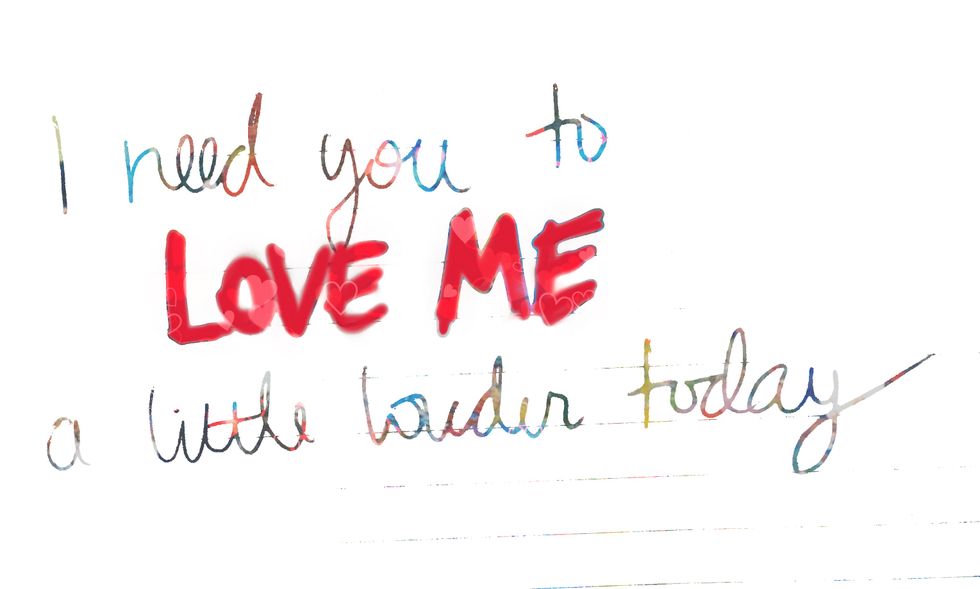 I need you to
LOVE ME
a little louder today